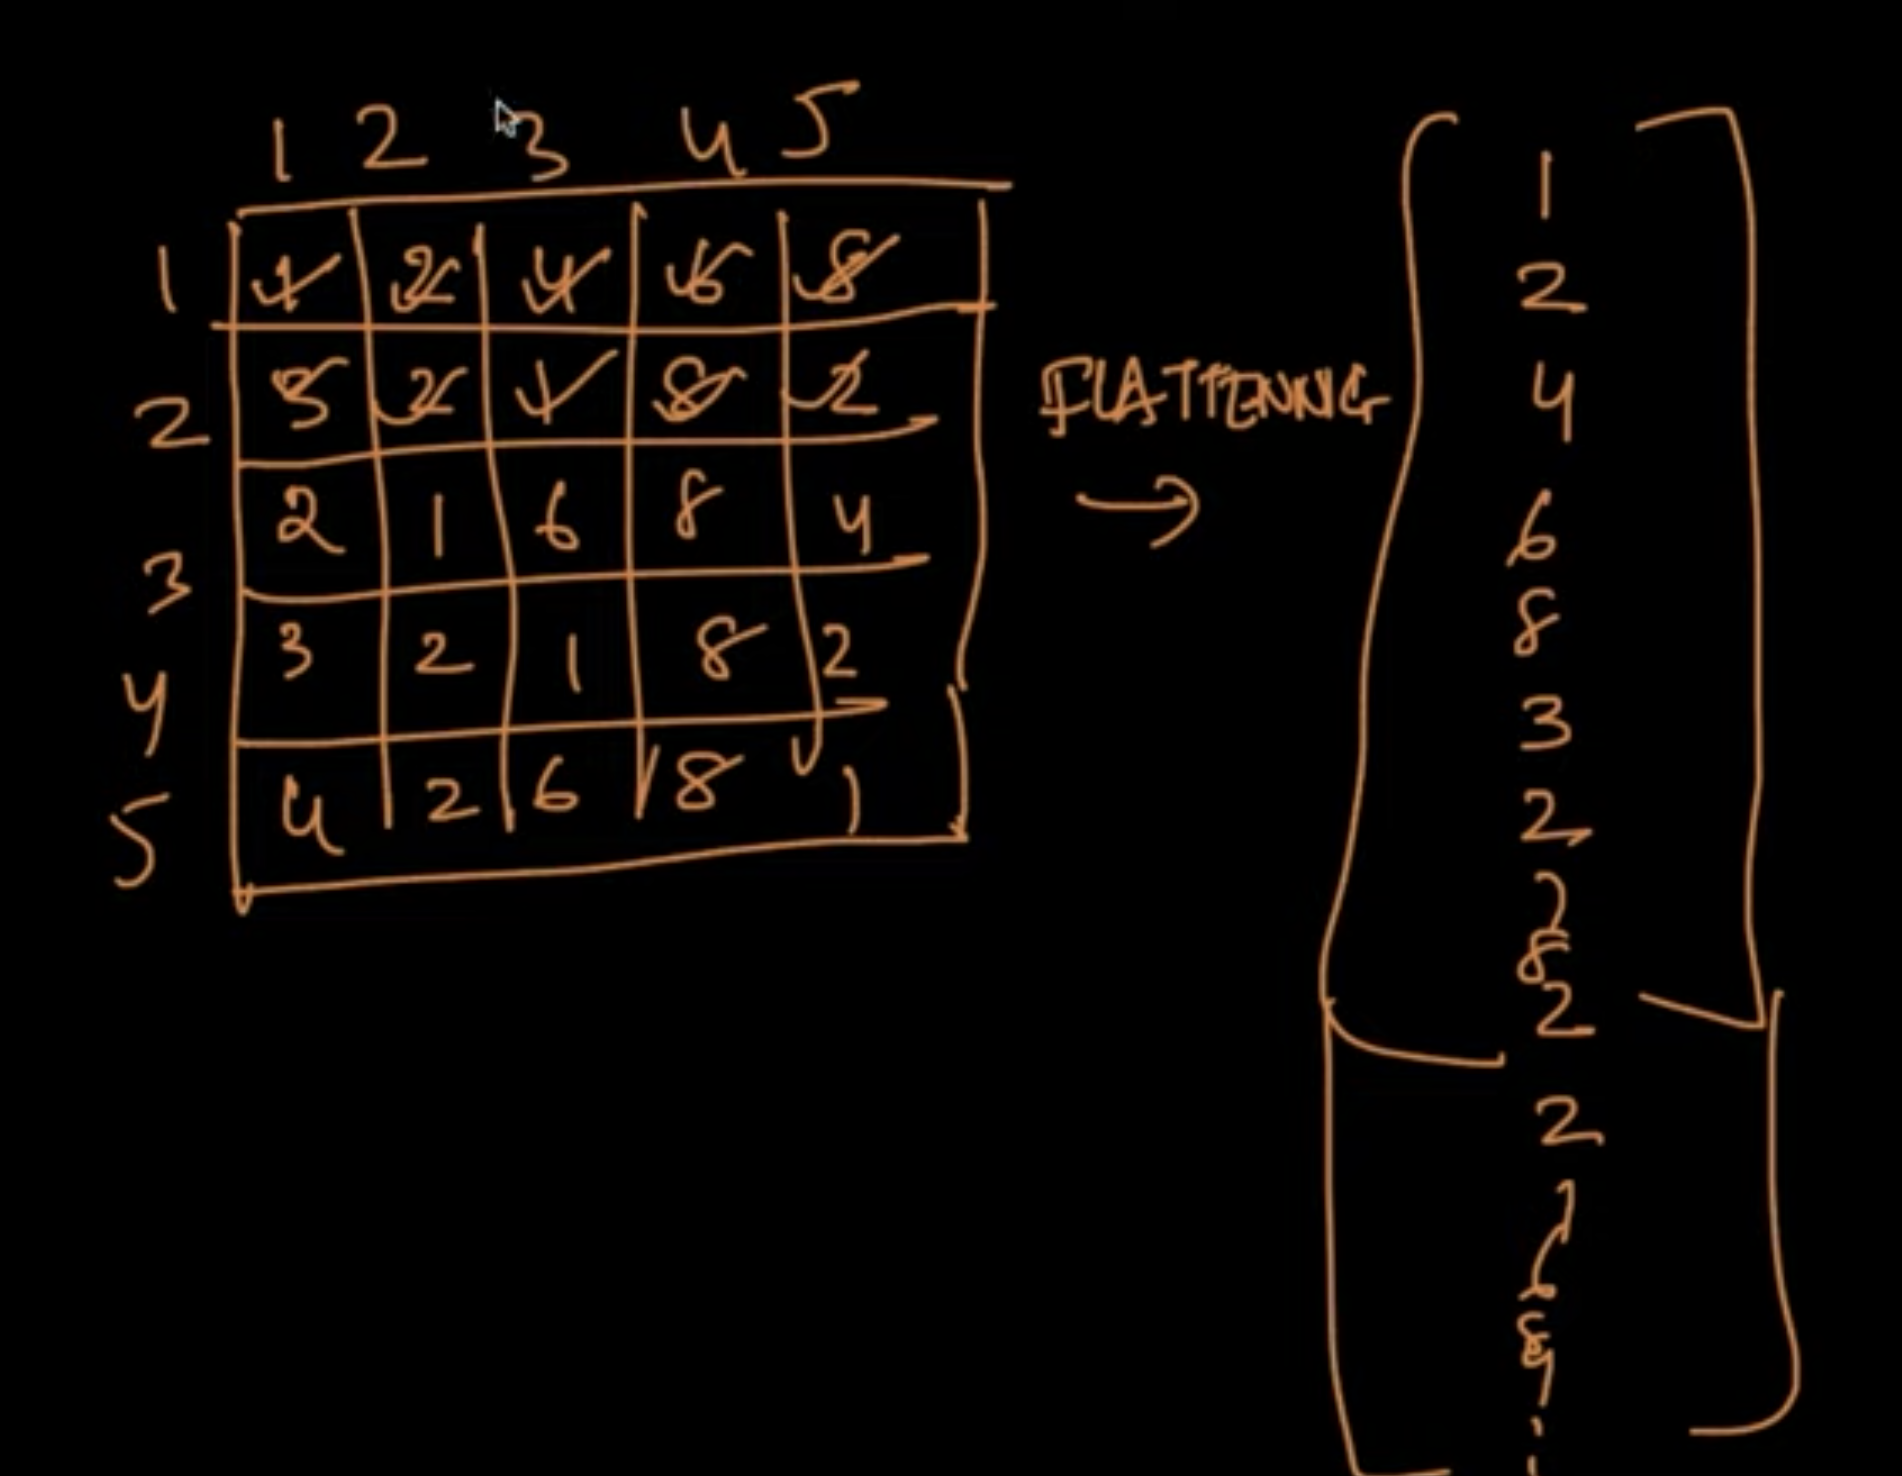 1 2 3 4 5
1 1 2 4 6 8
2 3 2 1 8 2
3 2 1 6 8 4
4 3 2 1 8 2
5 4 2 6 8 1
FLATTENNG
→
1
2
4
6
8
3
2
2
8
2
2
1
6
8
4